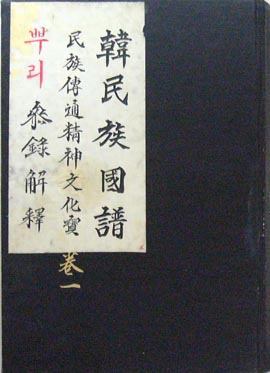 韓民族國譜
民族傳通精神文化寶
卷一
뿌리 錄解釋